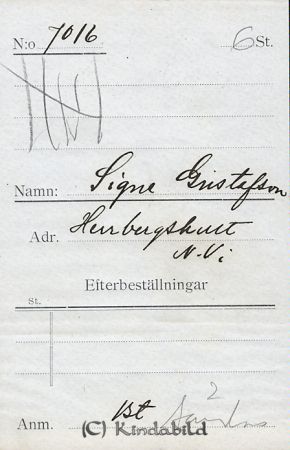 N:o 7016 6 St.
Namn: Signe Gustafson
Adr. Herrbergshult
N. Vi
Efterbeställningar
St.
2
Anm. Bt
(C) Kindabild